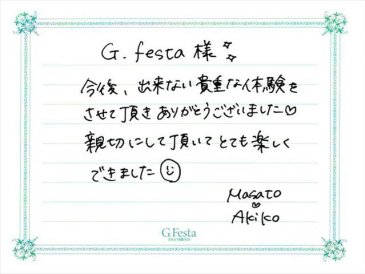 G.festa 様
今後、出来ない貴重な体験を
させて頂きありがとうございました♡
親切にして頂いてとても楽しく
できました☺
Masato
♡
Akiko
G.Festa
DIAMOND